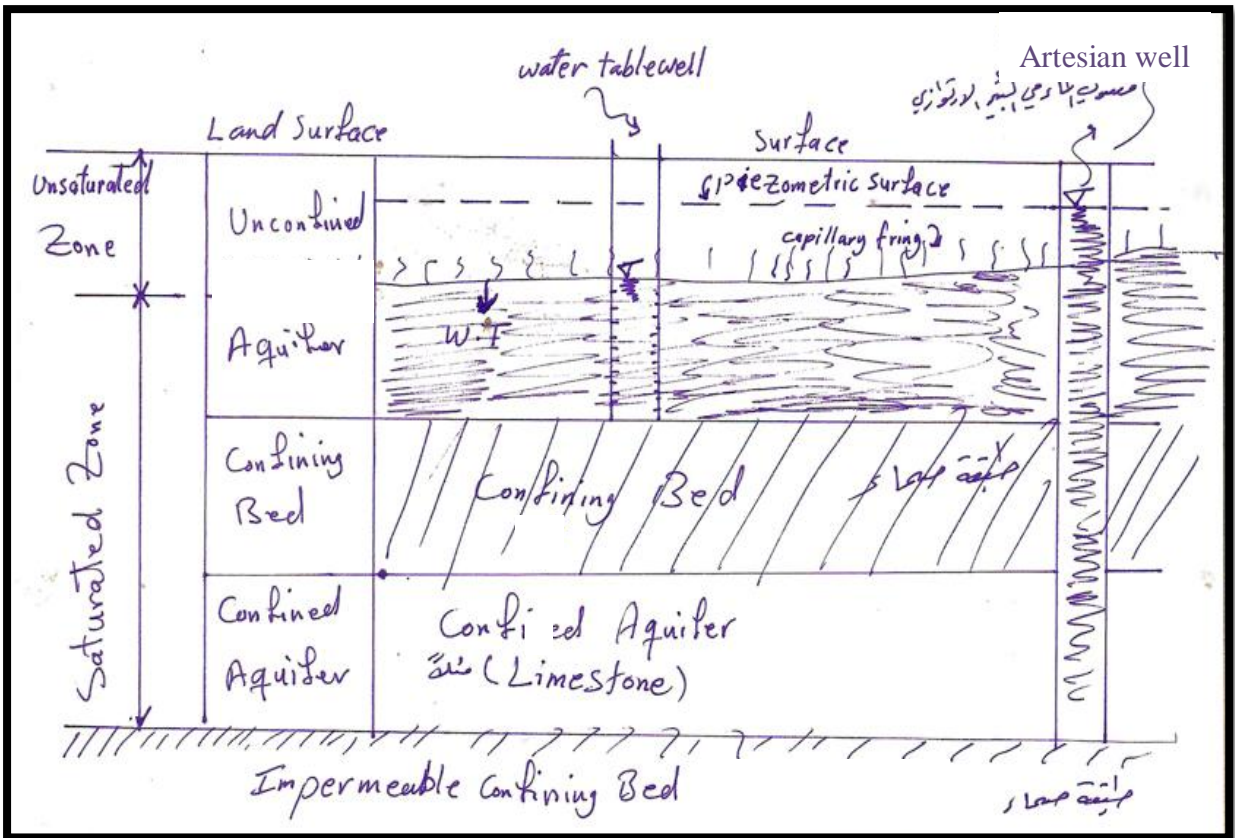 Artesian well
water tablewell
منسوب الماء في البئر الارتوازي
Land Surface
Surface
Unsaturated
Zone
Piezometric surface
Unconfined
capillary fring
W.T
Aquifer
Saturated Zone
Confining
Bed
Confining Bed
طبقة صماء
Confined
Aquifer
Confi ed Aquifer
مثلاً (Limestone)
Impermeable Confining Bed
طبقة صماء